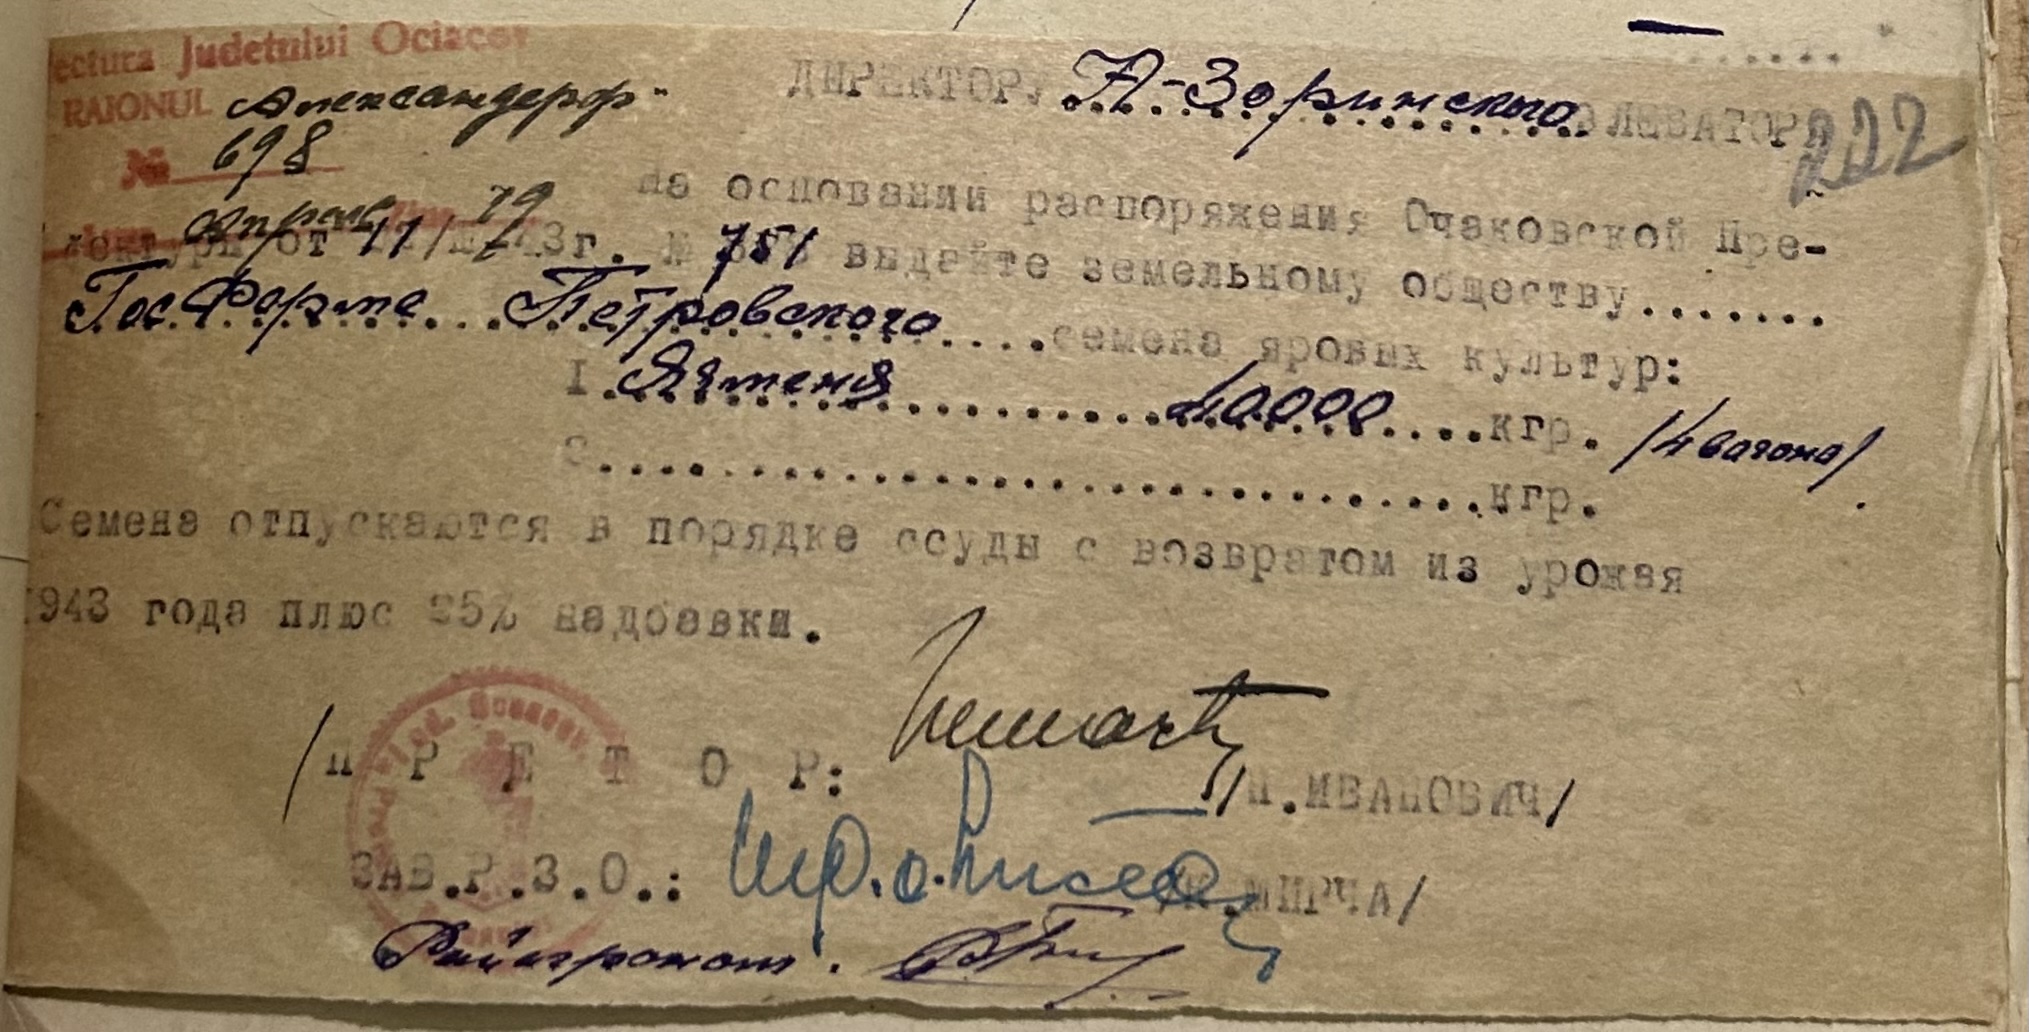 ectura Judetului Ociacov
RAIONUL Александерф"
№ 698
Апреля 19
ДИРЕКТОРУ Н-Зоринского ЭЛЕВАТОРА
222
На основании распоряжения Очаковской Пре-
фектуры от 11/ 43г. № 751 выдайте земельному обществу.......
Гос. Ферме Петровского....семена яровых культур:
I. Ячменя 40000 ....кгр. /4 вагона/
2...............................кгр.
Семена отпускаются в порядке ссуды с возвратом из урожая
1943 года плюс 25% надбавки.
/П Р Е Т О Р: /П.ИВАНОВИЧ/
ЗАВ.Р.З.О.: МИРЧА/
Райагроном.